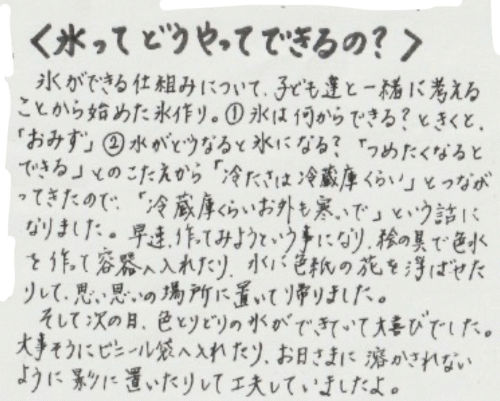 <氷ってどうやってできるの?>
氷ができる仕組みについて、子ども達と一緒に考える
ことから始めた氷作り。①氷は何からできる?ときくと、
「おみず」②水がどうなると氷になる?「つめたくなると
できる」とのこたえから「冷たさは冷蔵庫くらい」とつなが
ってきたので、「冷蔵庫くらいお外も寒いで」という話に
なりました。早速、作ってみようという事になり、絵の具で色水
を作って容器へ入れたり、水に色紙の花を浮ばせた
りして、思い思いの場所に置いて帰りました。
そして次の日、色とりどりの氷ができていて大喜びでした。
大事そうにビニール袋へ入れたり、お日さまに溶かされない
ように影に置いたりして工夫していましたよ。